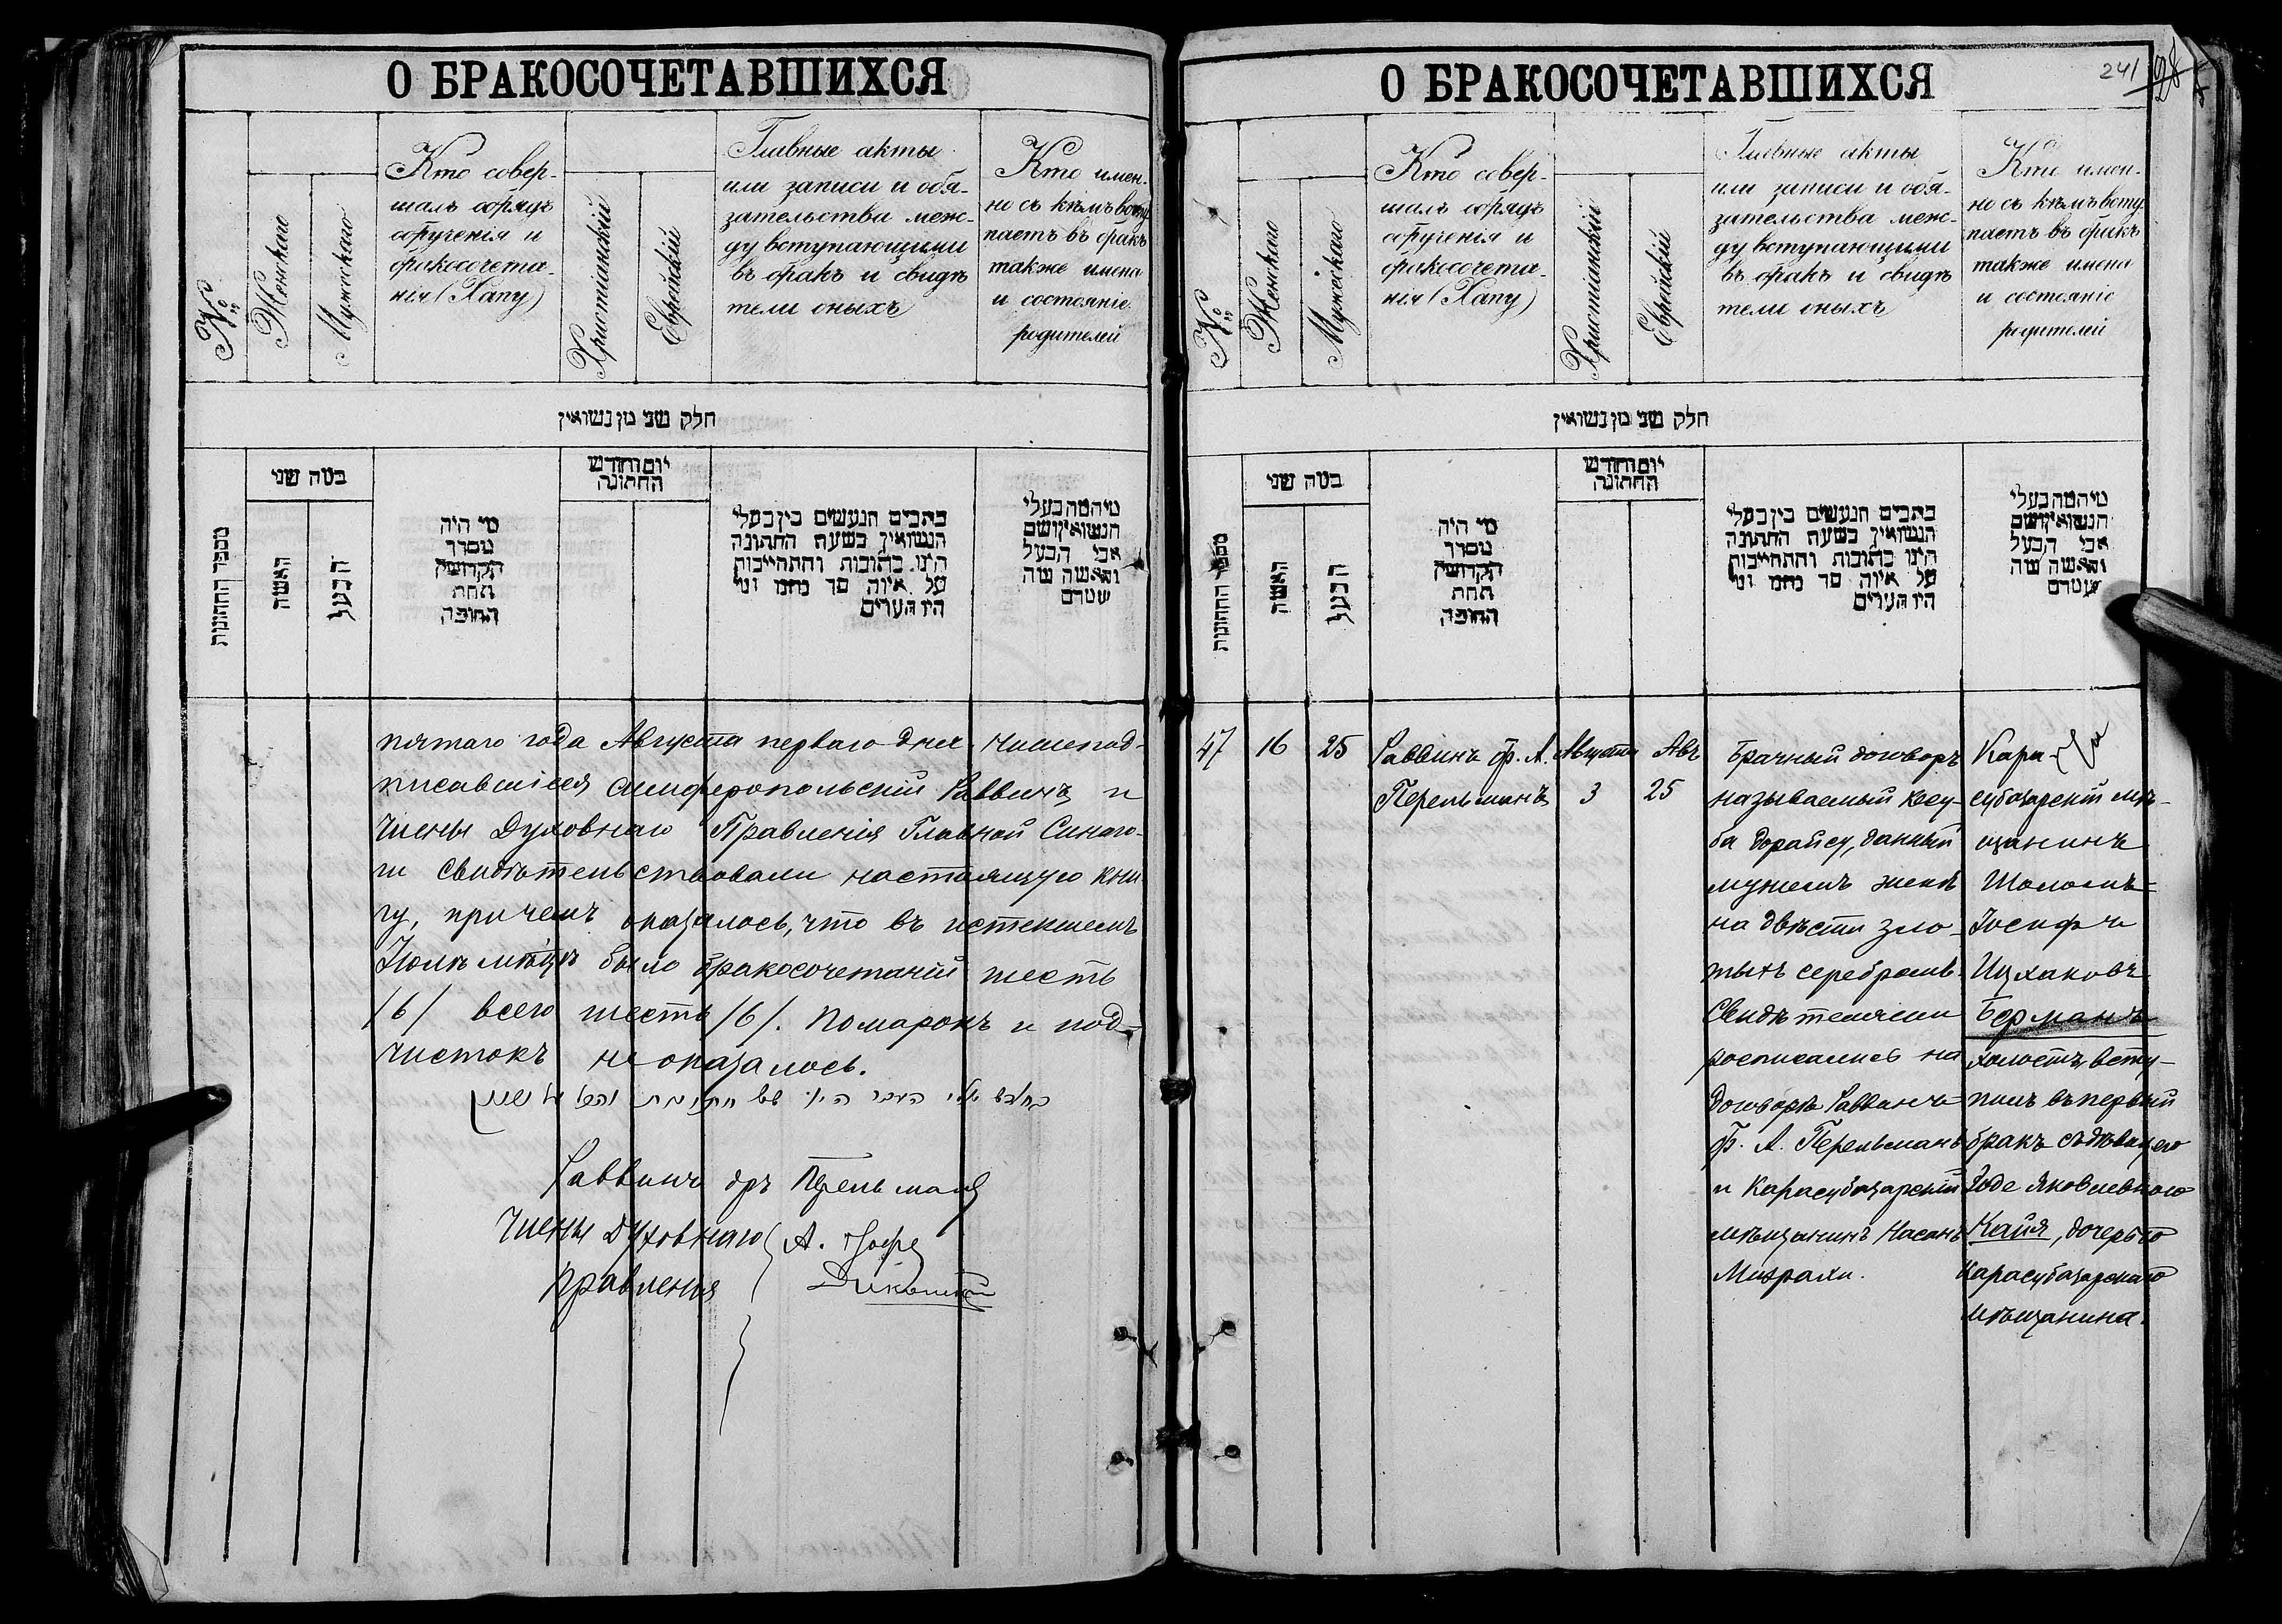 О БРАКОСОЧЕТАВШИХСЯ
№
Женскаго
Мужескаго
Кто совер-
шалъ обрядъ
обрученія и
бракосочета-
нія (Хапу)
Христіанскій
Еврейскій
Главные акты
или записи и обя-
зательства меж-
ду вступающими
въ бракъ и свидѣ
тели оныхъ
Кто имен-
но съ кѣмъ всту
паетъ въ бракъ
также имена
и состояніе
родителей
חלק שני מן נשואין
מספר החתונות
כמה שני
האשה
הבעל
מי היה
מסדר
הקדושין
תחת
החופה
יום וחודש
החתונה
כתבים הנעשים בין בעלי
הנשואין בשעת החתונה
היינו כתובות והתחייבות
על איזה סך נתנו ומי
היו העדים
מי המה בעלי
הנשואין ושם
אבי הבעל
והאשה מה
שמם
пятаго года Августа перваго дня нижепод-
писавшіеся Симферопольскій Раввинъ и
Члены Духовнаго Правленія Главной Синаго-
ги свидѣтельствовали настоящую кни-
гу, причемъ оказалось, что въ истекшемъ
Іюлѣ мѣсяцѣ было бракосочетаній шесть
/6/ всего шесть /6/. Помарокъ и под-
чистокъ не оказалось.
Раввинъ дръ Перельманъ
Члены Духовнаго
Правленія
А.
О БРАКОСОЧЕТАВШИХСЯ
241
№
Женскаго
Мужескаго
Кто совер-
шалъ обрядъ
обрученія и
бракосочета-
нія (Хапу)
Христіанскій
Еврейскій
Главные акты
или записи и обя-
зательства меж-
ду вступающими
въ бракъ и свидѣ
тели оныхъ
Кто имен-
но съ кѣмъ всту
паетъ въ бракъ
также имена
и состояніе
родителей
חלק שני מן נשואין
מספר החתונות
כמה שני
האשה
הבעל
מי היה
מסדר
הקדושין
תחת
החופה
יום וחודש
החתונה
כתבים הנעשים בין בעלי
הנשואין בשעת החתונה
היינו כתובות והתחייבות
על איזה סך נתנו ומי
היו העדים
מי המה בעלי
הנשואין ושם
אבי הבעל
והאשה מה
שמם
47
16
25
Раввинъ Ф. А.
Перельманъ
Августа
3
Авъ
25
Брачный договоръ
называемый Ксу-
ба дорайсу, данный
мужемъ женѣ
на двѣсти зло-
тыхъ серебромъ.
Свидѣтелями
росписались на
договорѣ Раввинъ
Ф. А. Перельманъ
и Карасубазарскій
мѣщанинъ Насанъ
Мизрахи.
Кара-
субазарскій мѣ-
щанинъ
Шоломъ=
Іосифъ
Ицхаковъ
Берманъ
холостъ, всту-
пилъ въ первый
бракъ съ дѣвицею
Годе Яковлевною
Кайя, дочерью
Карасубазарскаго
мѣщанина.